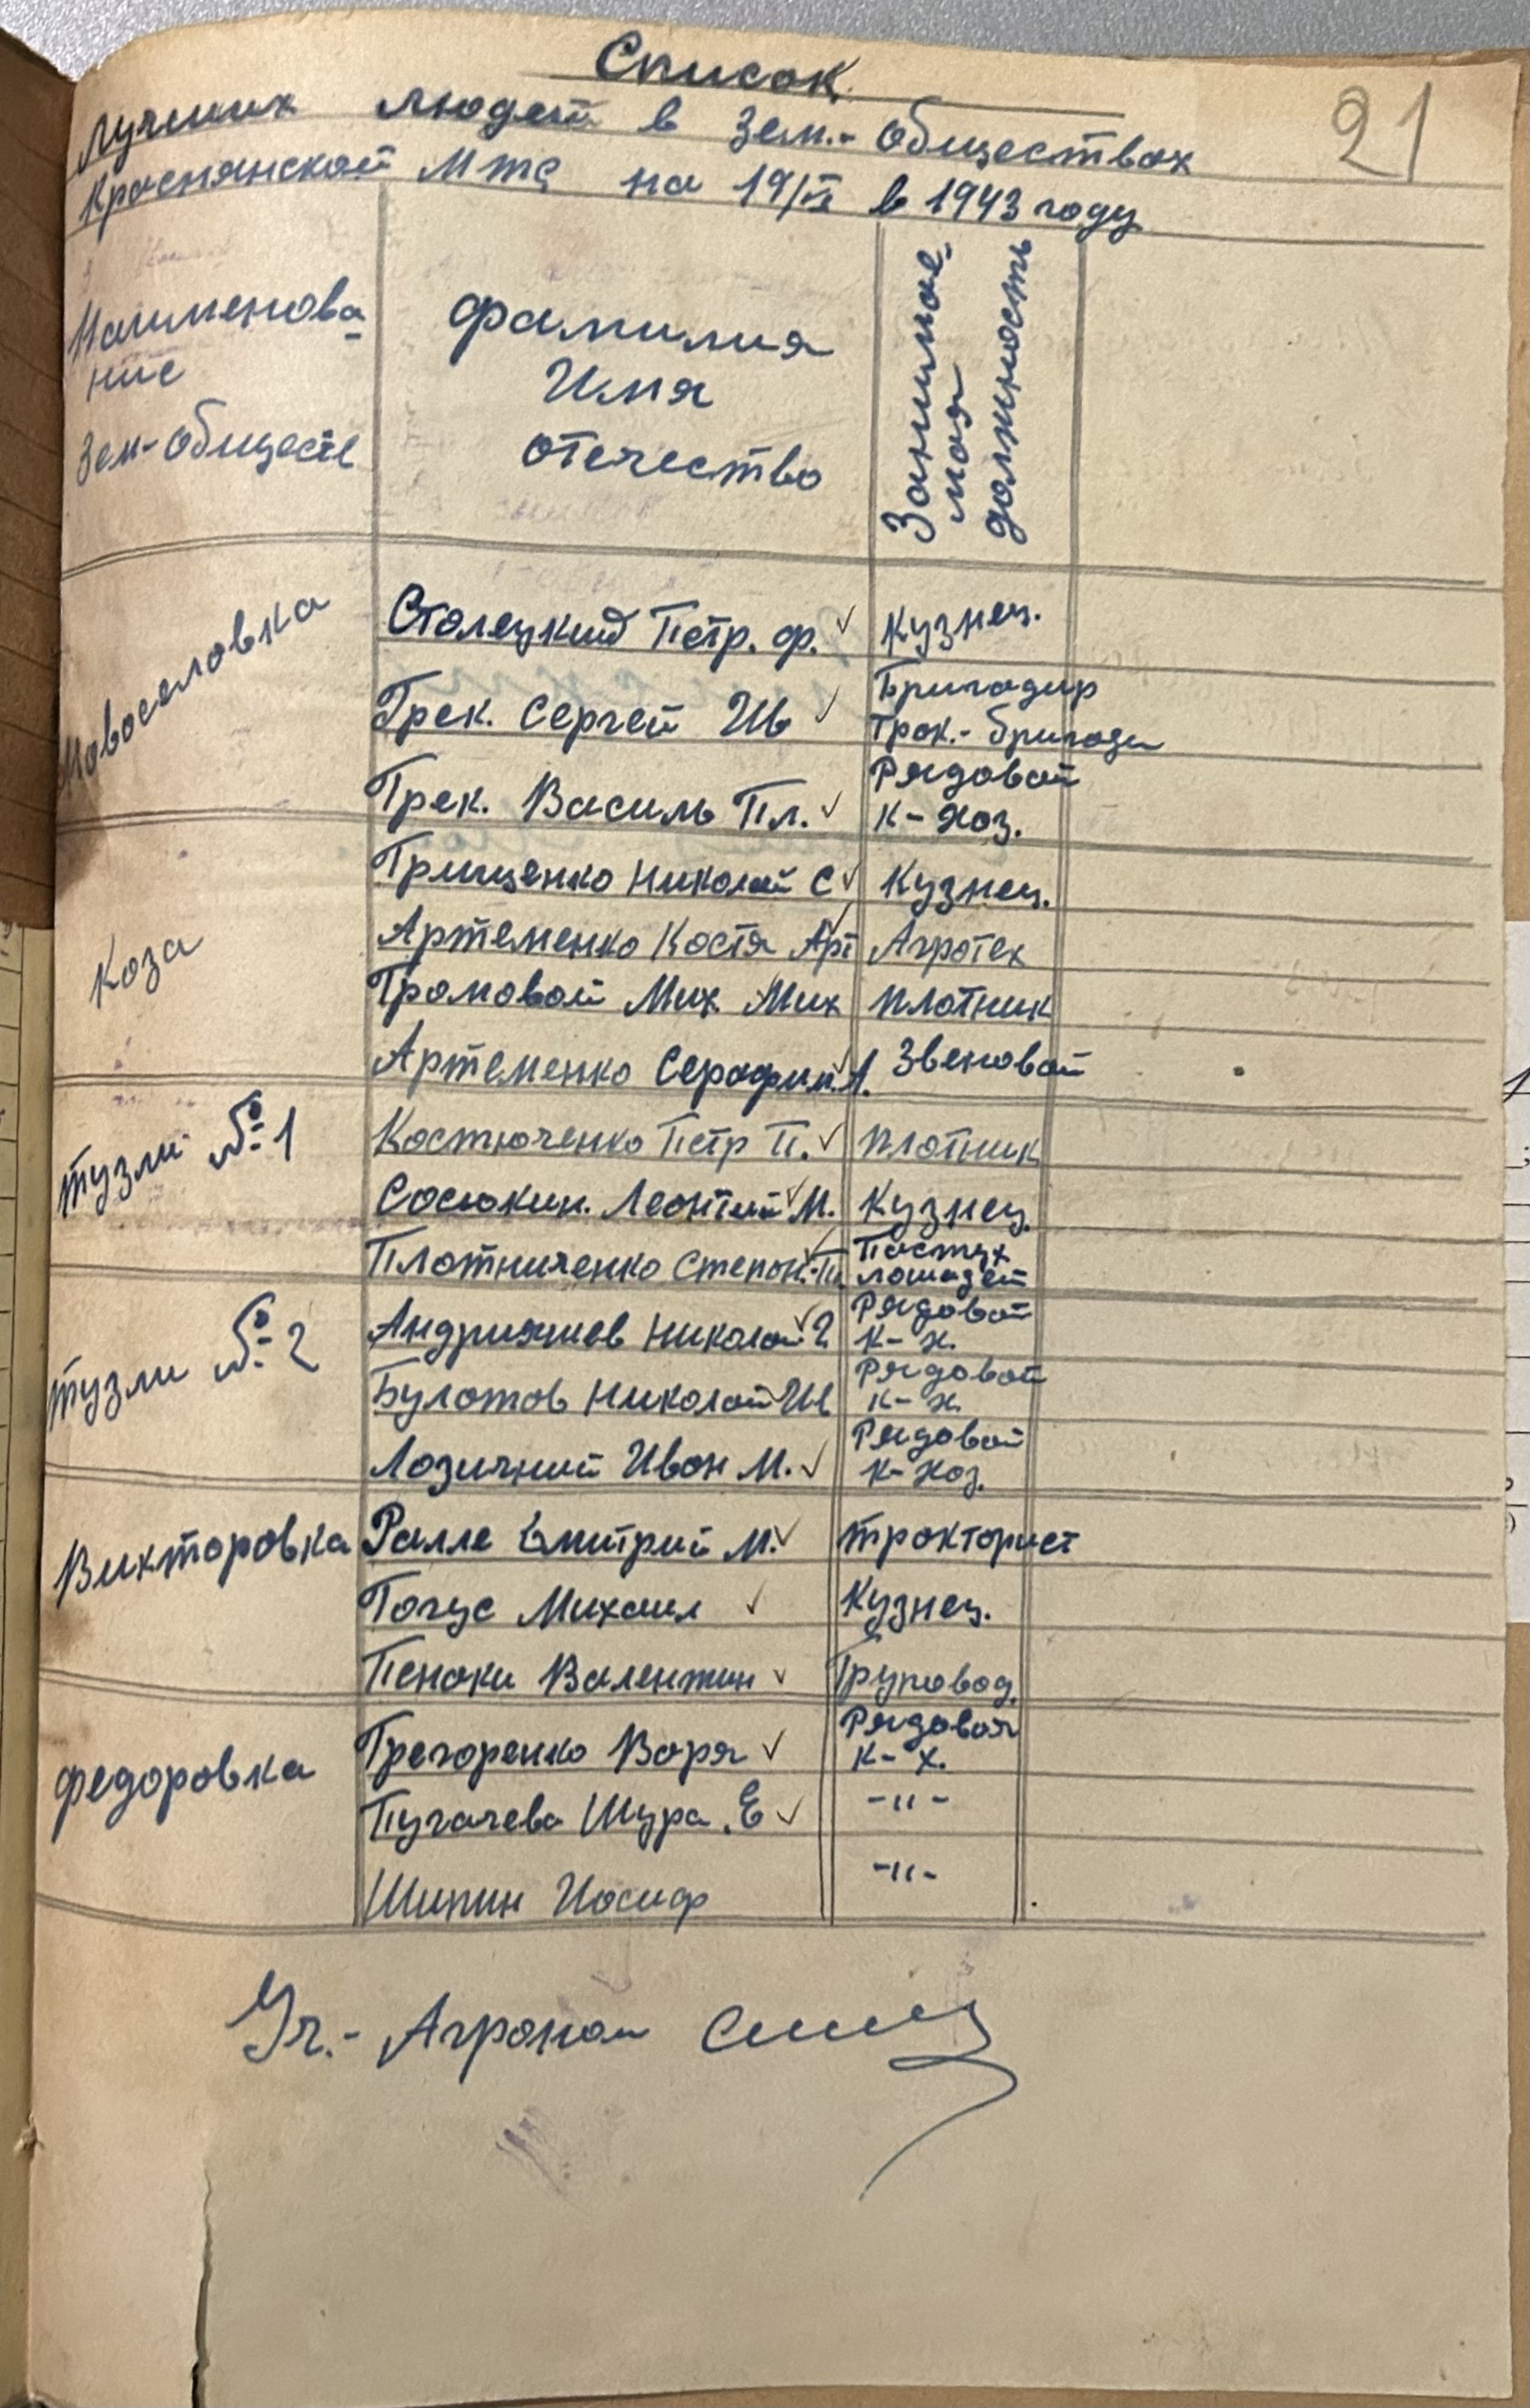 21
Список
Лучших людей в Зем.-обществах
Краснянской МТС на 19/VI в 1943 году
Наименова-
ние
Зем-обществ
Фамилия
Имя
отечество
Занимае-
мая
должность
Новоселовка
Столецкий Петр. Ф. ✓ Кузнец.
Грек. Сергей Ив ✓ Бригадир
Трак.- бригады
Грек. Василь Пл. ✓ Рядовой
к-хоз.
Коза
Грищенко Николай С ✓ Кузнец.
Артеменко Костя Арт ✓ Агротех
Громовой Мих Мих Плотник
Артеменко Серафим. А. ✓ Звеновой
Тузли № 1
Костюченко Петр П. ✓ Плотник
Сосюкин. Леонтий М. ✓ Кузнец
Плотниченко Степан. П. ✓ Пастух
лошадей
Тузли № 2
Андрияшев Николай ✓ Рядовой
к-х.
Булатов Николай Ив Рядовой
к-х.
Лозичний Иван М. ✓ Рядовой
к-хоз.
Викторовка
Ралле Дмитрий М. ✓ тракторист
Гогус Михаил ✓ Кузнец.
Пенаки Валентин ✓ Груповод.
Федоровка
Грегоренко Варя ✓ Рядовая
к-х.
Пугачева Шура. Е ✓ -"-
Шипин Иосиф -"-
Уч.- Агроном